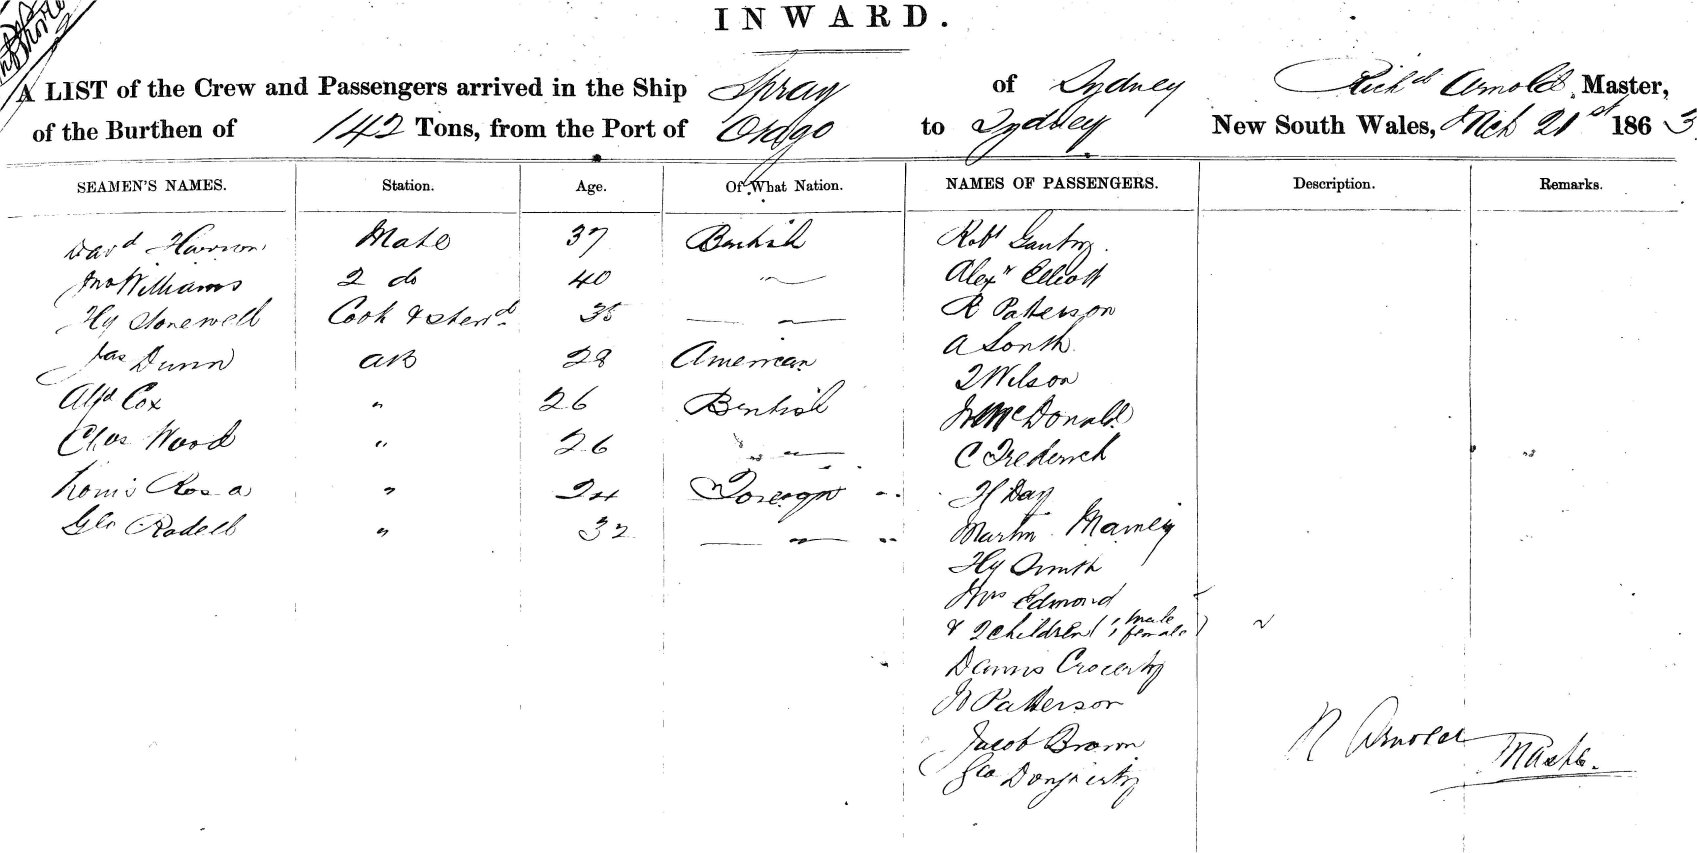 INWARD.
A LIST of the Crew and Passengers arrived in the Ship Spray of Sydney Richd Arnold, Master,
of the Burthen of 142 Tons, from the Port of Otago to Sydney New South Wales, Mch 21st 1863
SEAMEN'S NAMES. Station. Age. Of What Nation. NAMES OF PASSENGERS. Description. Remarks.
Davd Mate 37 British Robt
Jno Williams 2 do 40 " Alexr Elliott
Hy Stonewell Cook & Stewd 35 " R Patterson
Jas Dunn AB 28 American A
Alfd Cox " 26 British T Wilson
Chas Wood " 26 " McDonald
Louis Rosa " 24 Foreign C Frederick
Geo Rodell " 32 " H Day
Martin
Hy Smith
Mrs Edmond
& 2 children 1 male
1 female
Dennis
Patterson
Jacob Brown
Geo Dougherty
R Arnold
Master.